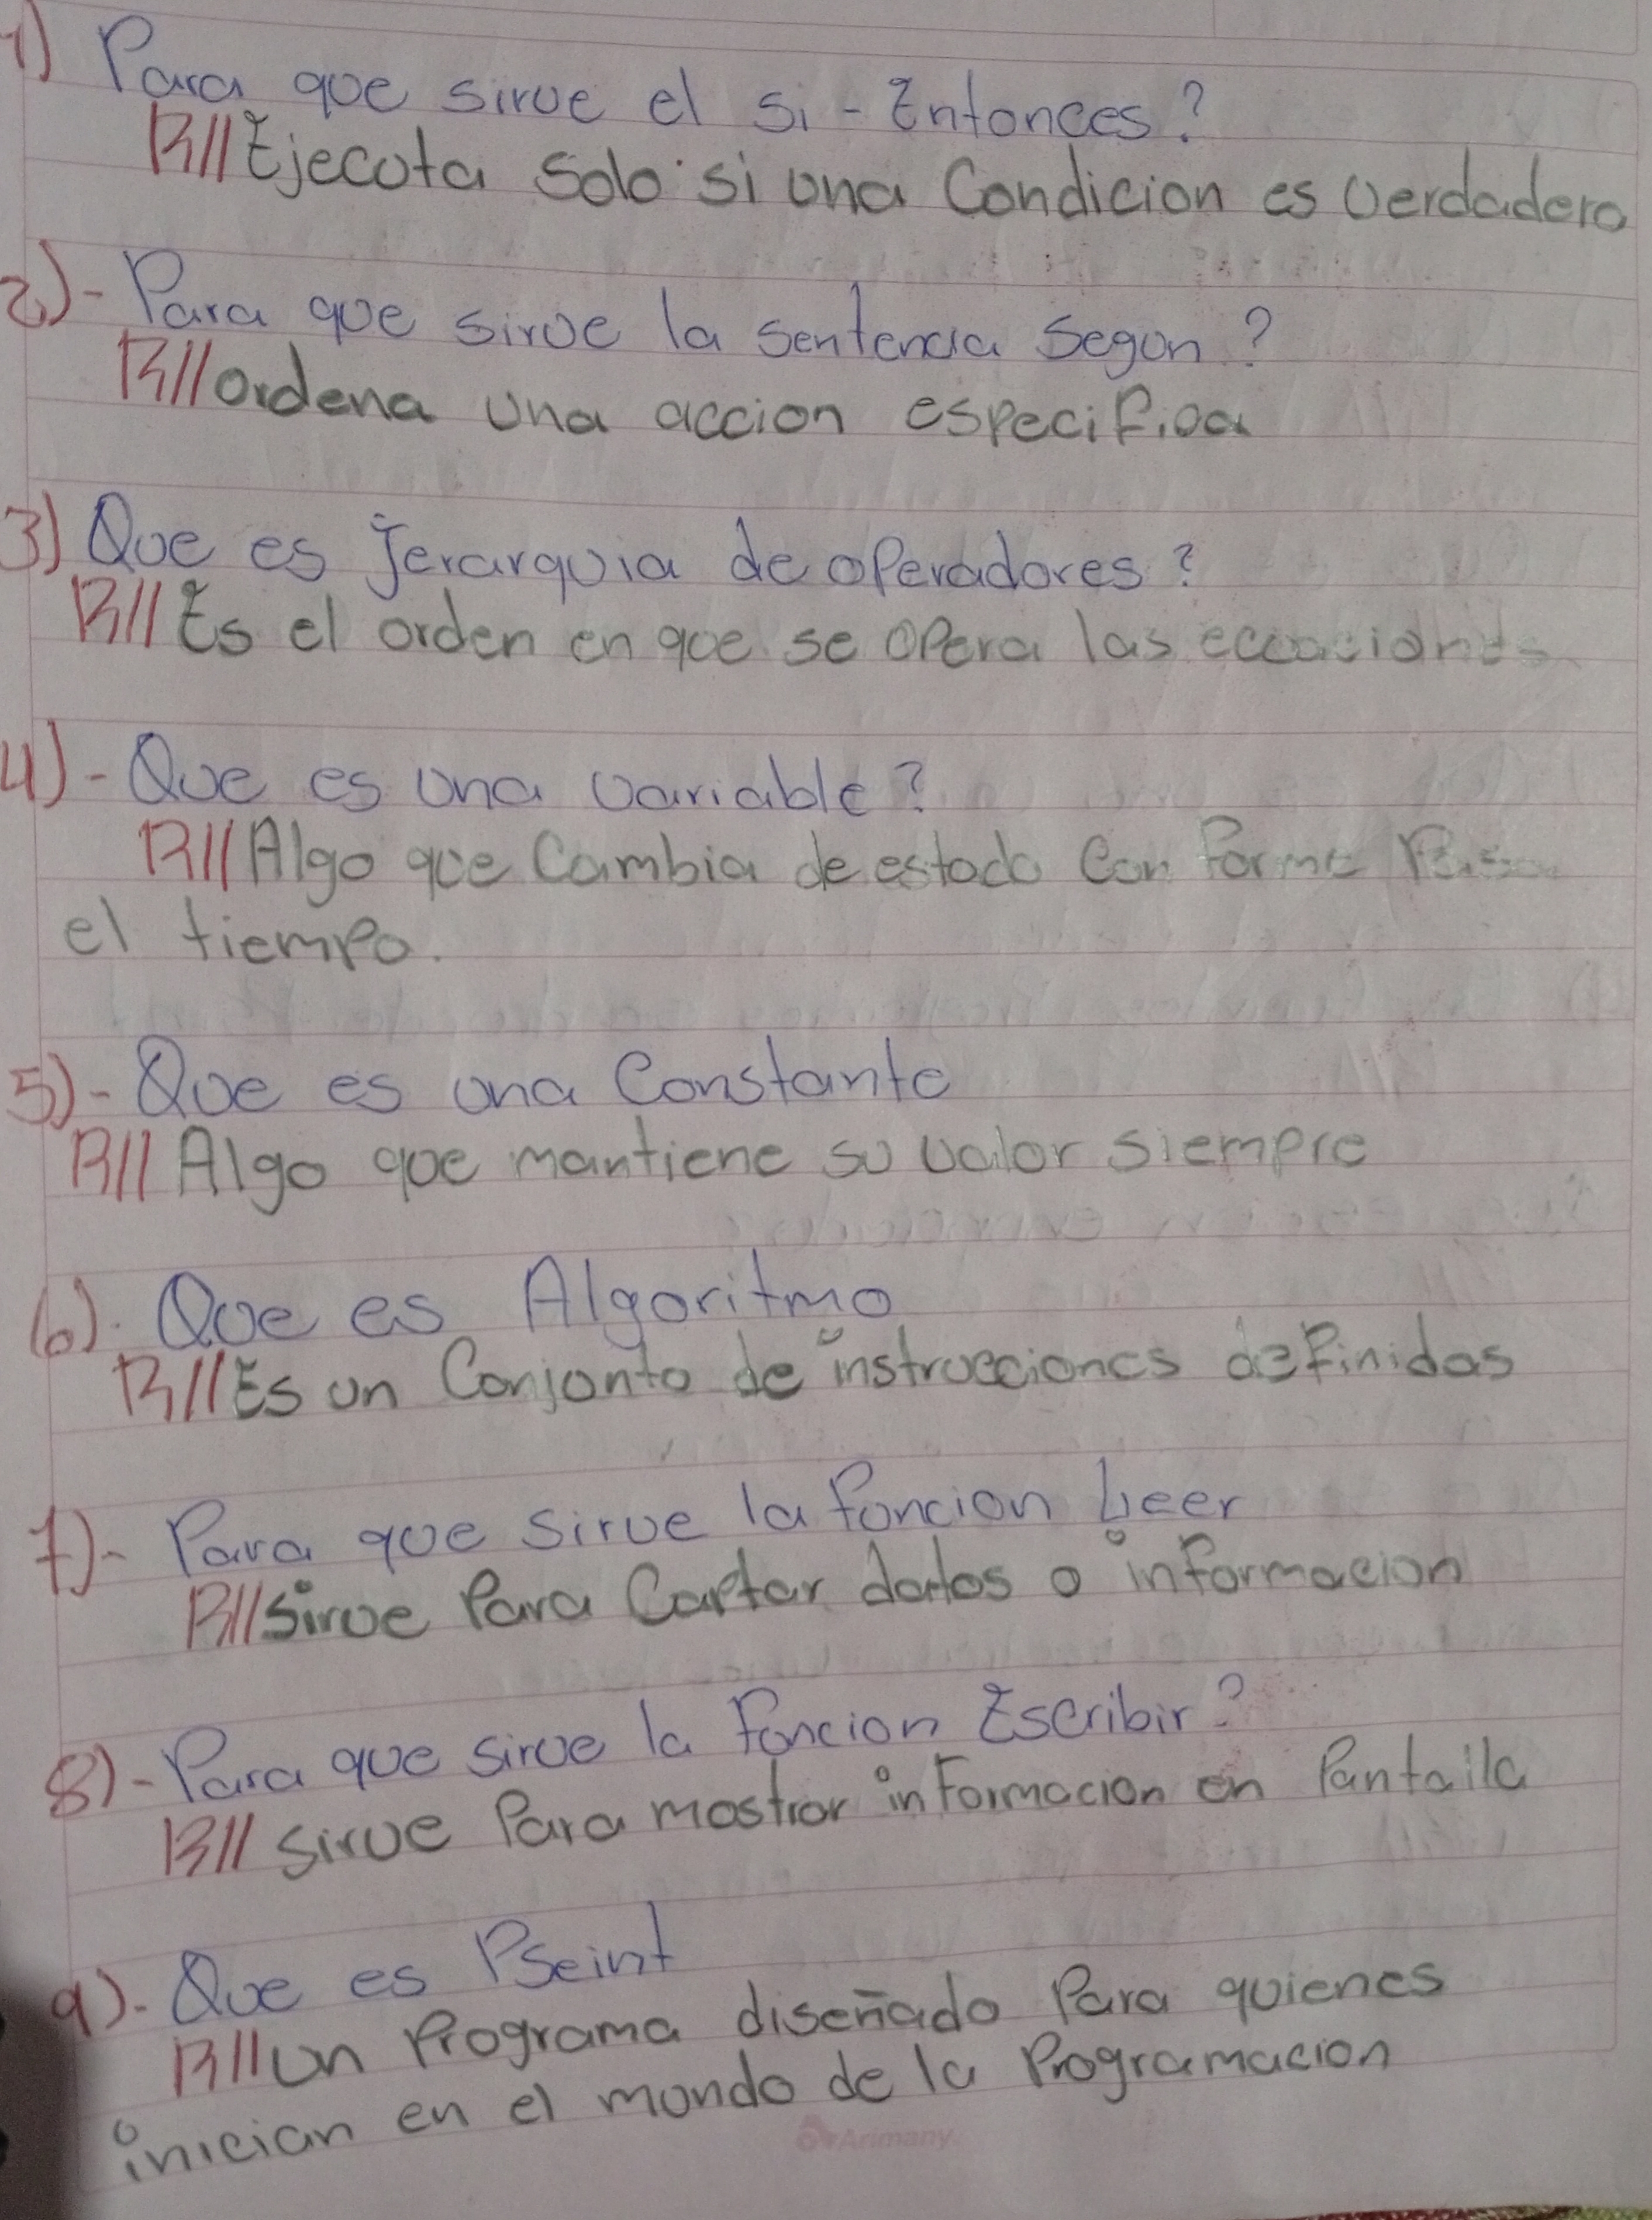 1) Para que sirve el si - Entonces?
R// Ejecuta solo si una Condicion es verdadero
2)- Para que sirve la sentencia segun?
R// ordena una accion especifica
3) Que es Jerarquia de operadores?
R// Es el orden en que se opera las ecuaciones
4)- Que es una variable?
R// Algo que Cambia de estado Con forme Pasa
el tiempo.
5)- Que es una Constante
R// Algo que mantiene su valor siempre
6). Que es Algoritmo
R// Es un Conjunto de instrucciones definidas
7)- Para que sirve la funcion Leer
R// sirve Para Captar datos o informacion
8)- Para que sirve la funcion Escribir?
R// sirve Para mostrar informacion en Pantalla
9). Que es PSeint
R// un Programa diseñado Para quienes
inician en el mundo de la Programacion
Arimany